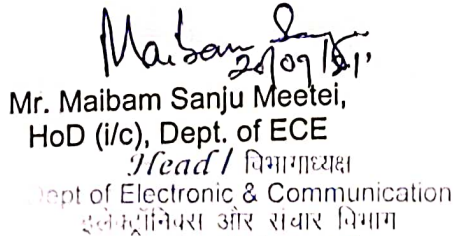 Maibam
20/09/21
Mr. Maibam Sanju Meetei,
HoD (i/c), Dept. of ECE
Head / विभागाध्यक्ष
Dept of Electronic & Communication
इलेक्ट्रॉनिक्स और संचार विभाग